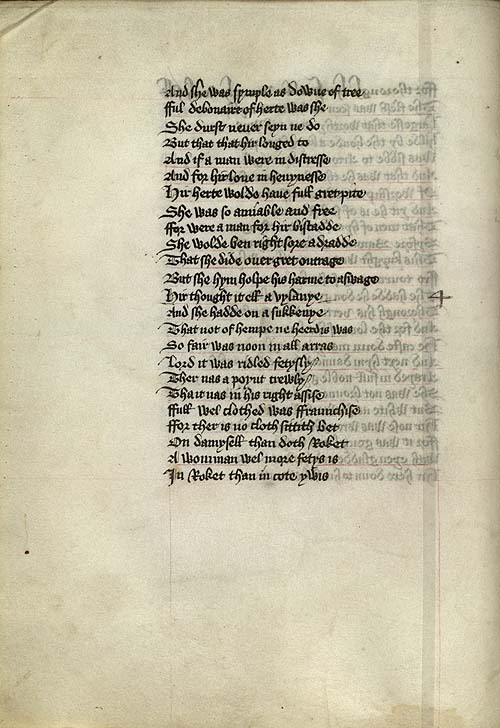 And she was symple as dowue of tree
fful debonaire of herte was she
She durst neuer seyn ne do
But that that hir longed to
And if a man were in distresse
And for hir loue in heuynesse
Hir herte wolde haue full gret pite
She was so amiable and free
ffor were a man for hir bistadde
She wolde ben right sore adradde
That she dide ouer gret outrage
But she hym holpe his harme to aswage
Hir thought it ell a vylanye
And she hadde on a sukkenye
That not of hempe ne heerdis was
So fair was noon in all arras
Lord it was ridled fetysly
Ther nas a poynt trewly
That it nas in his right assise
ffull wel clothed was ffraunchise
ffor ther is no cloth sittith bet
On damysell than doth Roket
A womman wel more fetys is
In Roket than in cote ywis
4